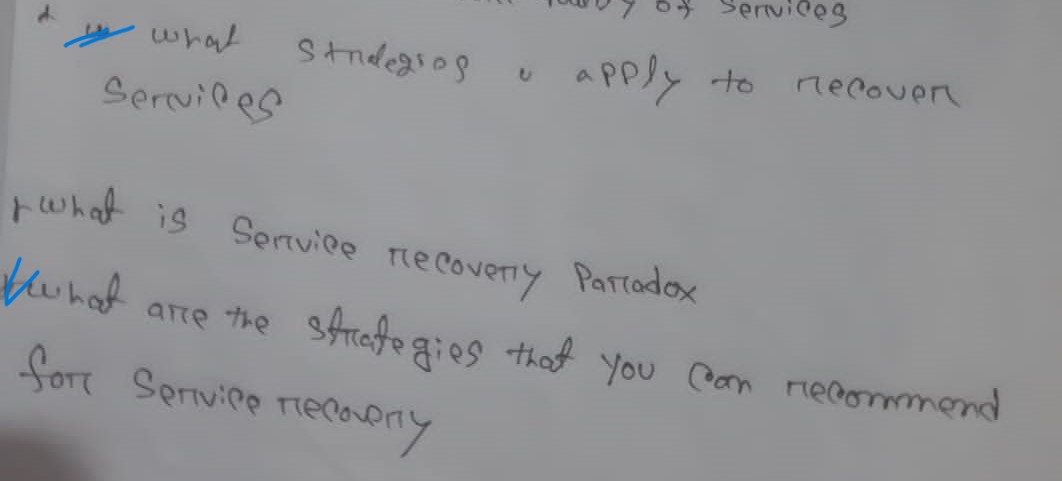 of services
what strdegios apply to recover
Services
what is Service recovery Parradox
what are the strategies that you can recommend
for Service recovery